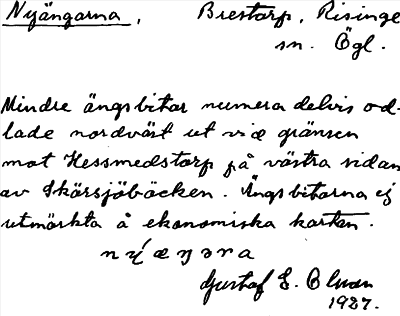 Nyängarna, Brestorp, Risinge
sn. Ögl.
Mindre ängsbitar numera delvis od-
lade nordväst ut vid gränsen
mot Hessmedstorp på västra sidan
av Skärsjöbäcken. Ängsbitarna ej
utmärkta å ekonomiska kartan.
Gustaf E.
1927.